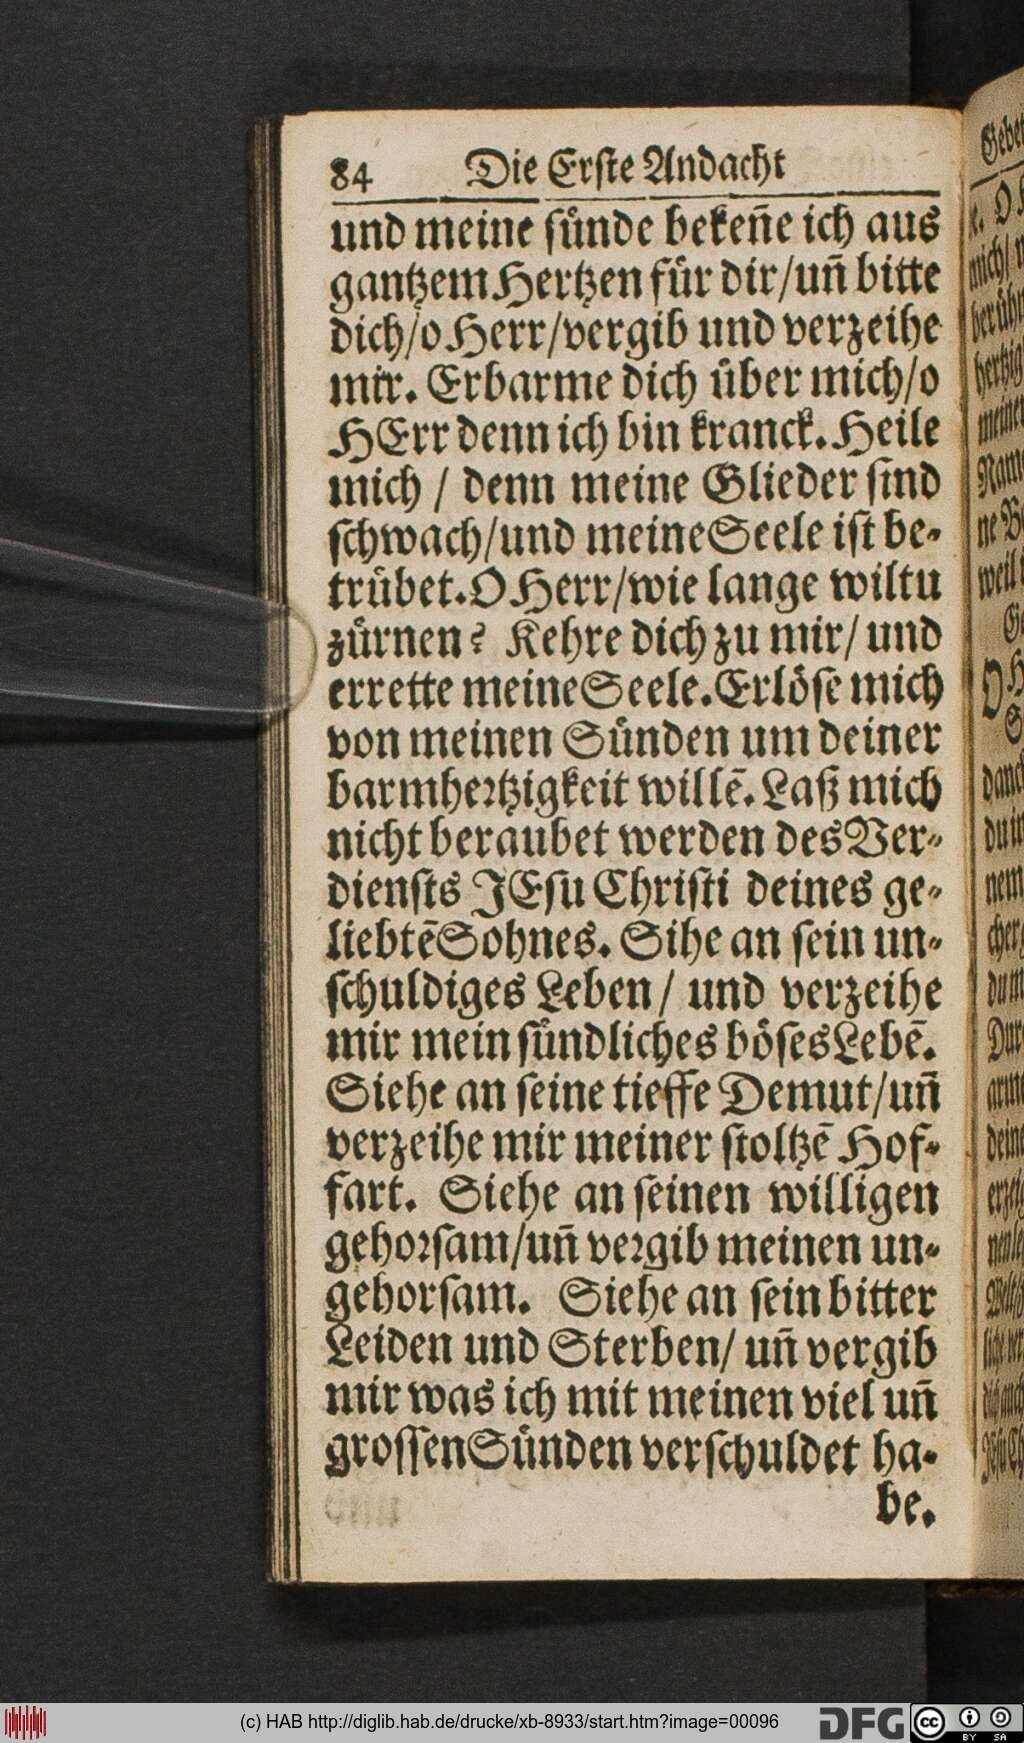 84 Die Erste Andacht
und meine sünde bekeñe ich aus
gantzem Hertzen für dir/uñ bitte
dich/o Herr/vergib und verzeihe
mir. Erbarme dich über mich/o
HErr denn ich bin kranck. Heile
mich / denn meine Glieder sind
schwach/und meine Seele ist be-
trübet. O Herr/wie lange wiltu
zürnen? Kehre dich zu mir/ und
errette meine Seele. Erlöse mich
von meinen Sünden um deiner
barmhertzigkeit willē. Laß mich
nicht beraubet werden des Ver-
diensts JEsu Christi deines ge-
liebtē Sohnes. Sihe an sein un-
schuldiges Leben / und verzeihe
mir mein sündliches böses Lebē.
Siehe an seine tieffe Demut/uñ
verzeihe mir meiner stoltzē Hof-
fart. Siehe an seinen willigen
gehorsam/uñ vergib meinen un-
gehorsam. Siehe an sein bitter
Leiden und Sterben/ uñ vergib
mir was ich mit meinen viel uñ
grossen Sünden verschuldet ha-
be.
(c) HAB http://diglib.hab.de/drucke/xb-8933/start.htm?image=00096
DFG
cc BY SA